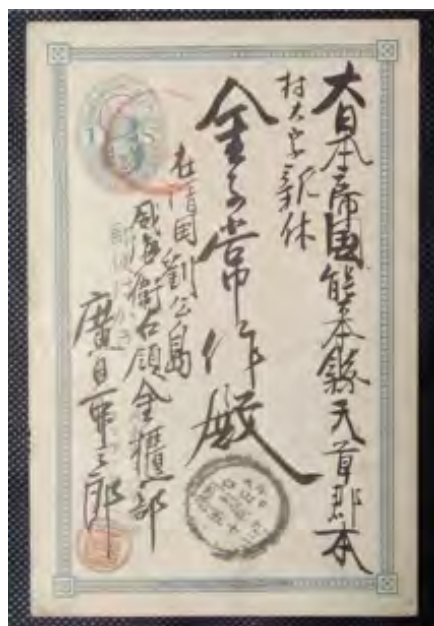 大日本帝国熊本縣天草郡本
村大字新休
金子常作殿
在清国劉公島
威海衛占領金櫃部
廣田
郎
郵便はがき
1 S